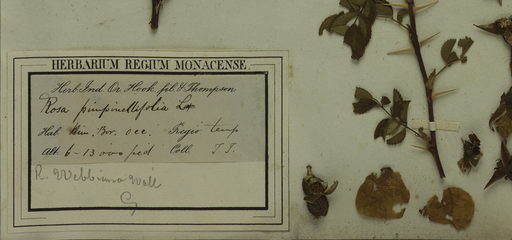 HERBARIUM REGIUM MONACENSE.
Herb. Ind. Or. Hook. fil. & Thompson
Rosa pimpinellifolia L.
Hab. Him. Bor. occ. Regio temp
Alt. 6-13 000 ped Coll. T. T.
R. Webbiana Wall